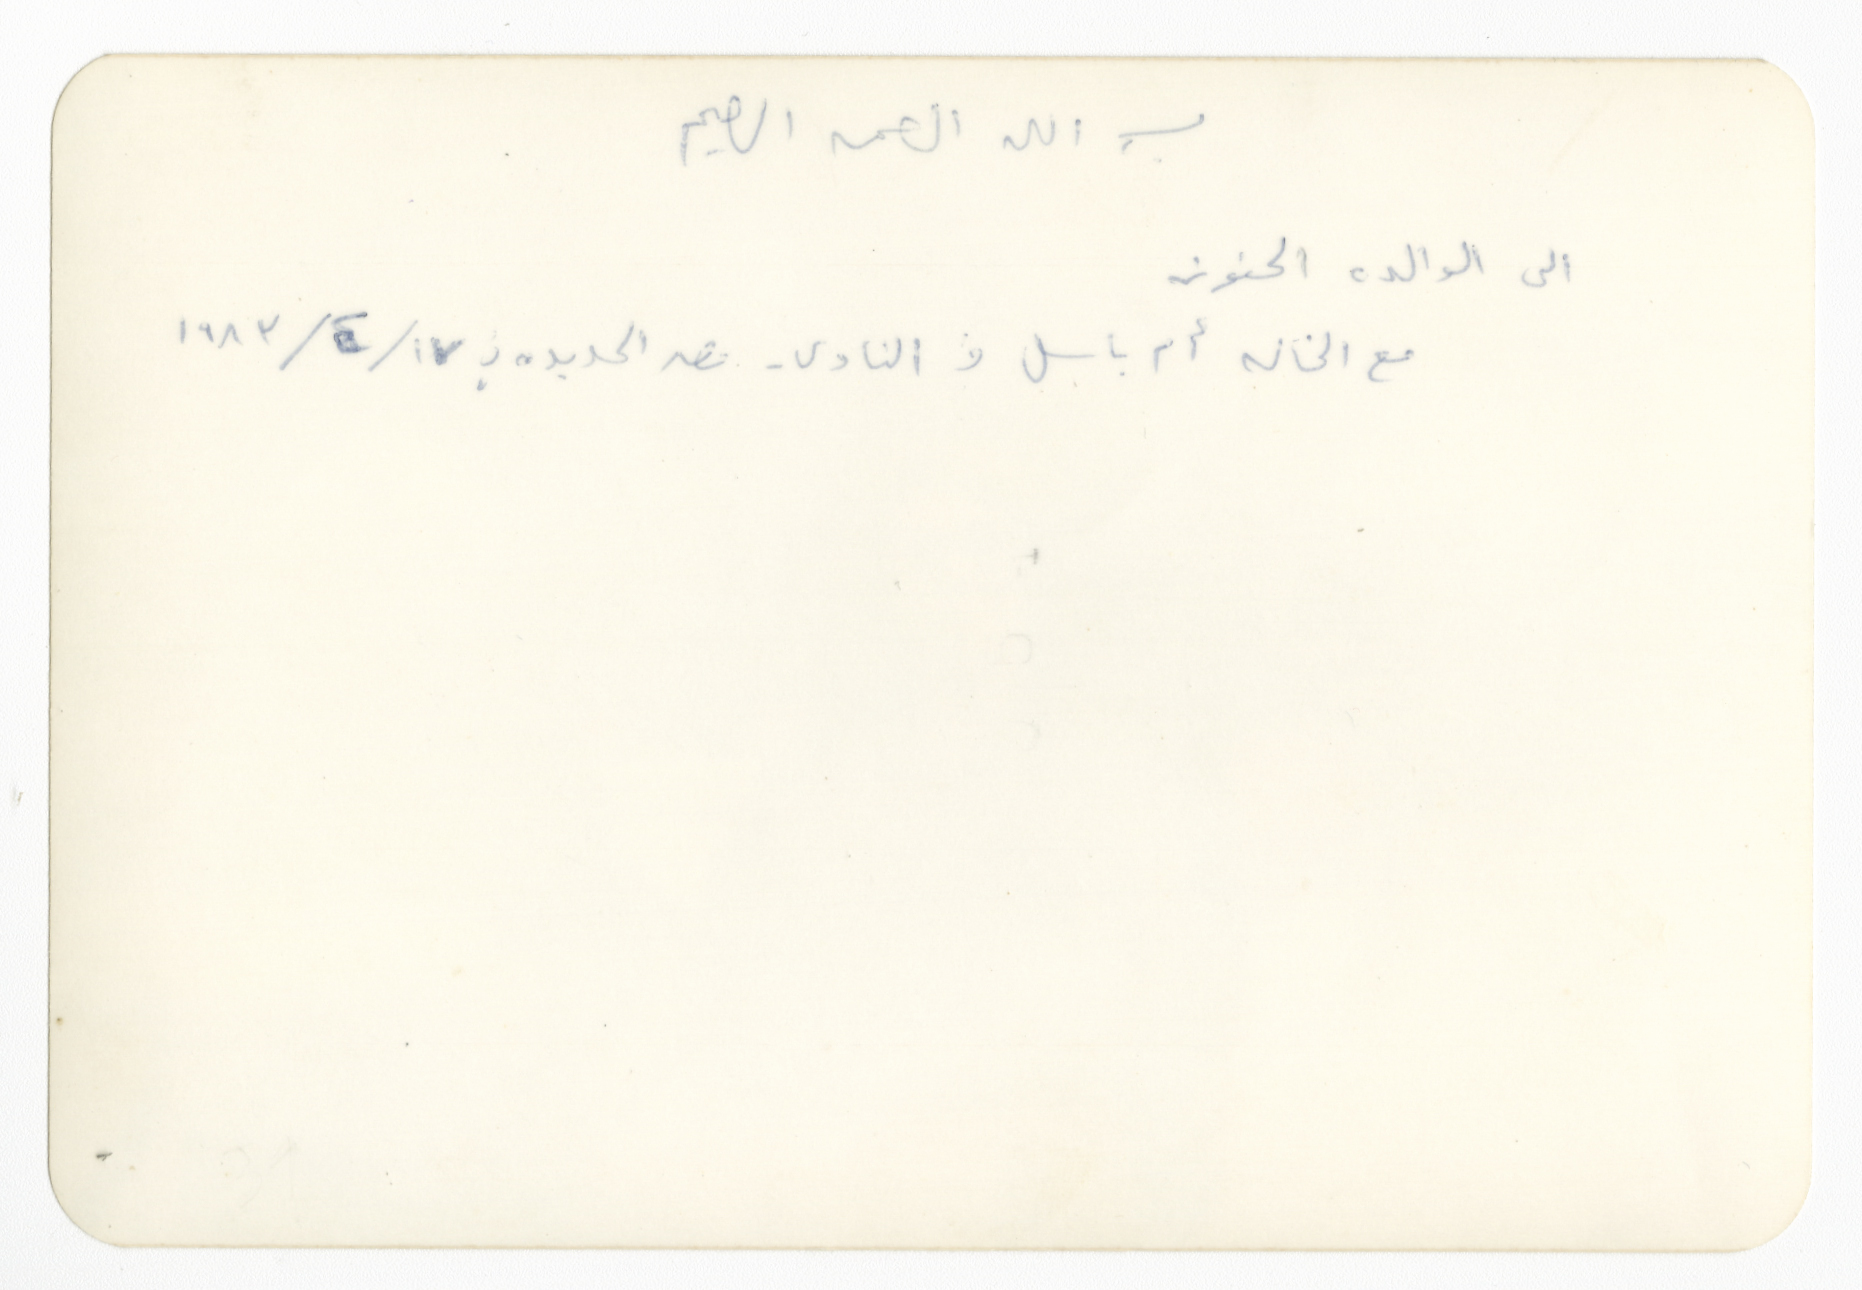 بسم الله الرحمن الرحيم
الى الوالده الحنونه
مع الخاله أم باسل في النادي - الحديده في ١٧/٤/١٩٨٣